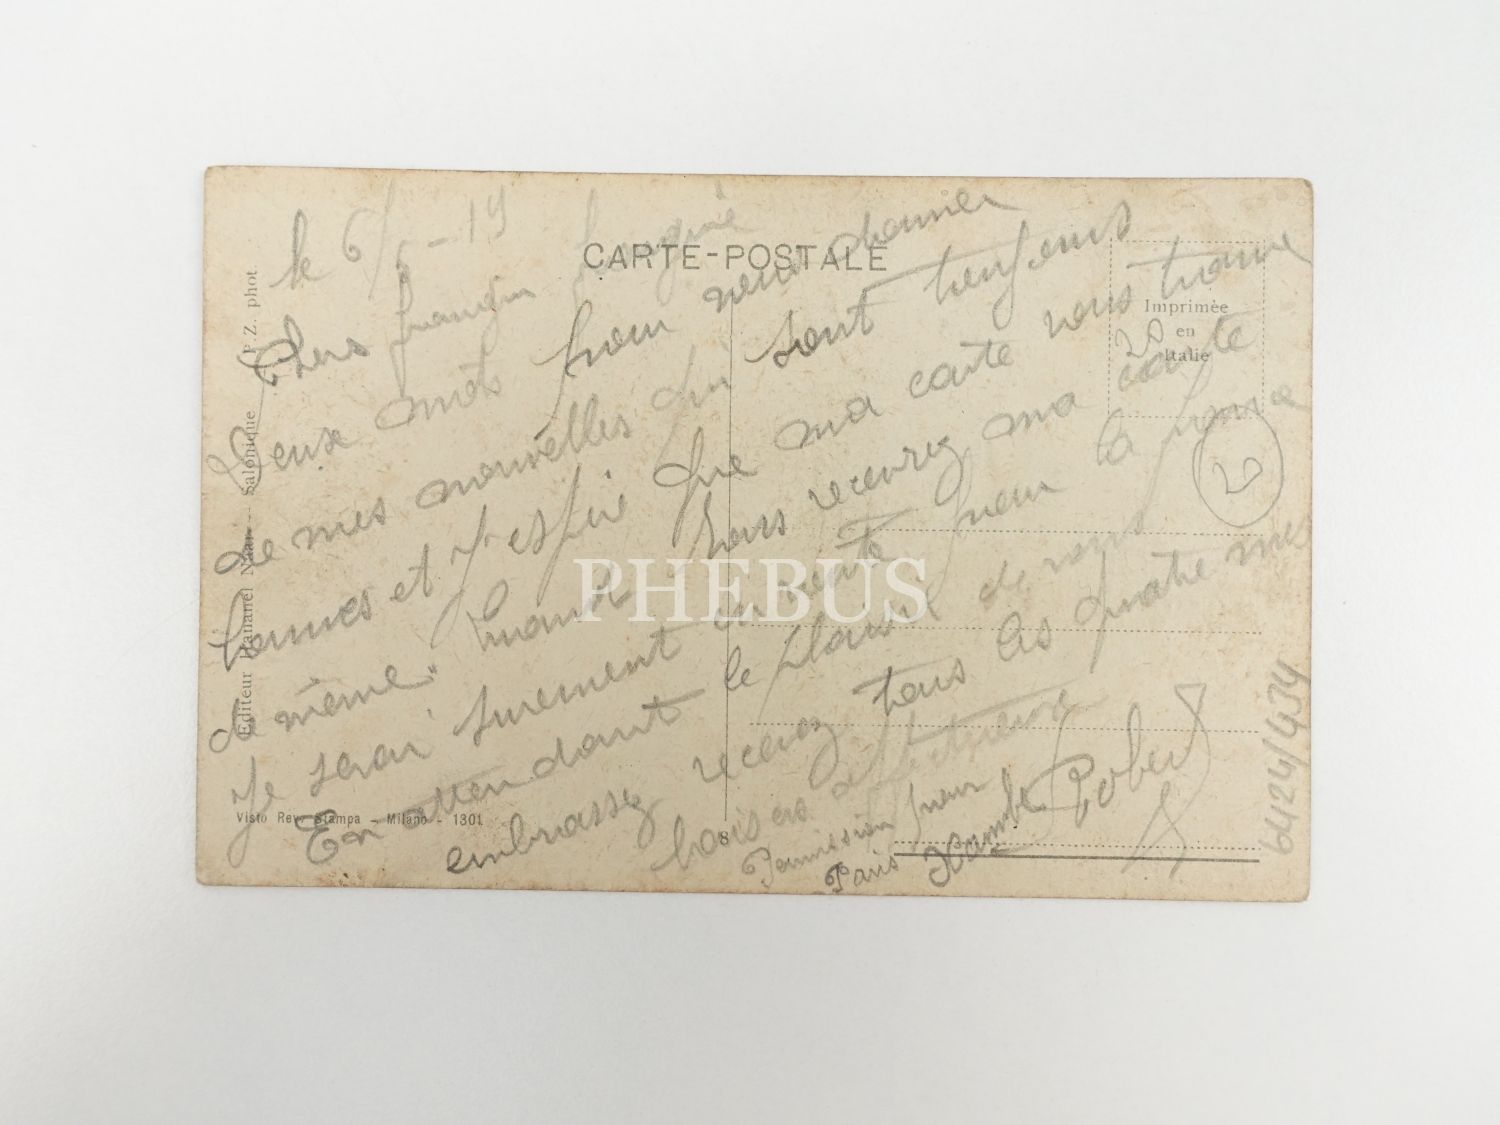 CARTE-POSTALE
le 6/5 - 19
Chers frangin frangine
Deux mots pour vous donner
de mes nouvelles qui sont toujours
bonnes et j'espère que ma carte vous trouve
de même. Quand vous recevrez ma carte
je serai surement en route pour la France
En attendant le plaisir de vous
embrassez recevez tous les quatre mes
baisers affectueux
Robert
Permission pour
Paris
Imprimée
en
Italie
20
2
P. Z. phot.
Editeur Hananel Naar — Salonique
Visto Rev. Stampa - Milano - 1301
8
6424/434
PHEBUS